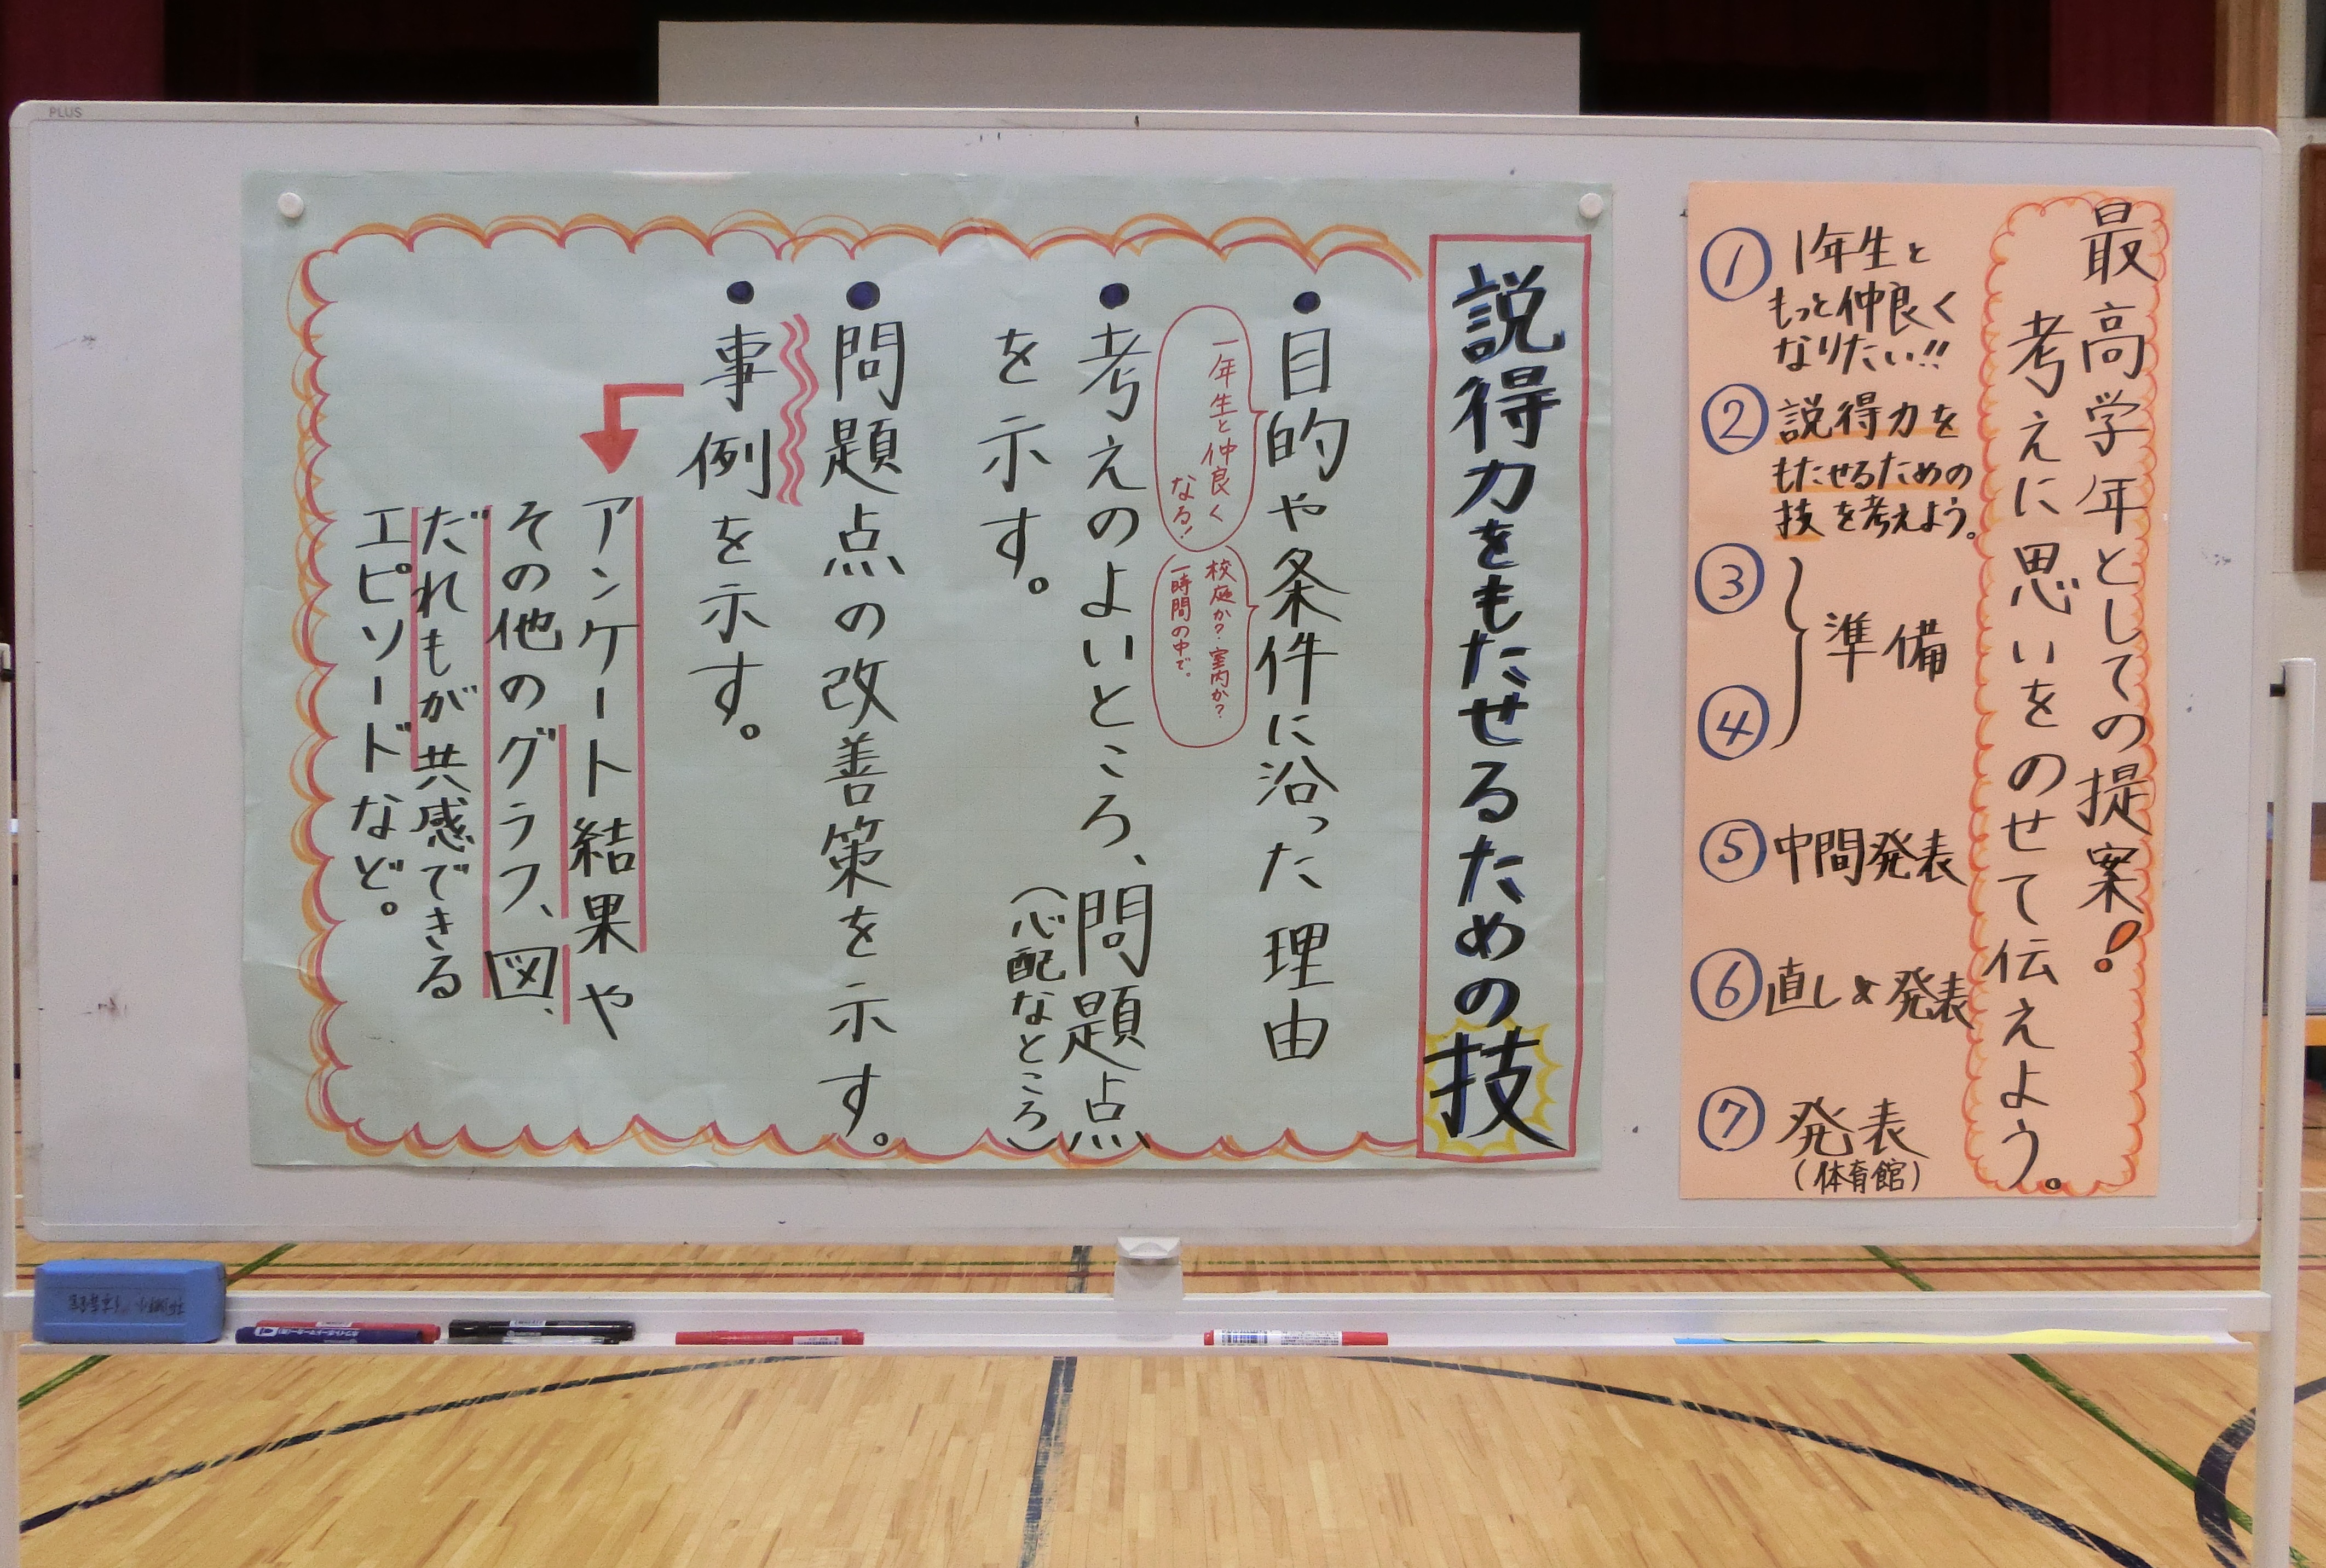 最高学年としての提案!
考えに思いをのせて伝えよう。
① 1年生と
もっと仲良く
なりたい!!
② 説得力を
もたせるための
技を考えよう。
③
④
準備
⑤ 中間発表
⑥ 直し&発表
⑦ 発表
(体育館)
説得力をもたせるための技
●目的や条件に沿った理由
一年生と仲良く
なる!
校庭か?室内か?
一時間の中で。
●考えのよいところ、問題点
(心配なところ)
を示す。
●問題点の改善策を示す。
●事例を示す。
アンケート結果や
その他のグラフ、図、
だれもが共感できる
エピソードなど。
PLUS